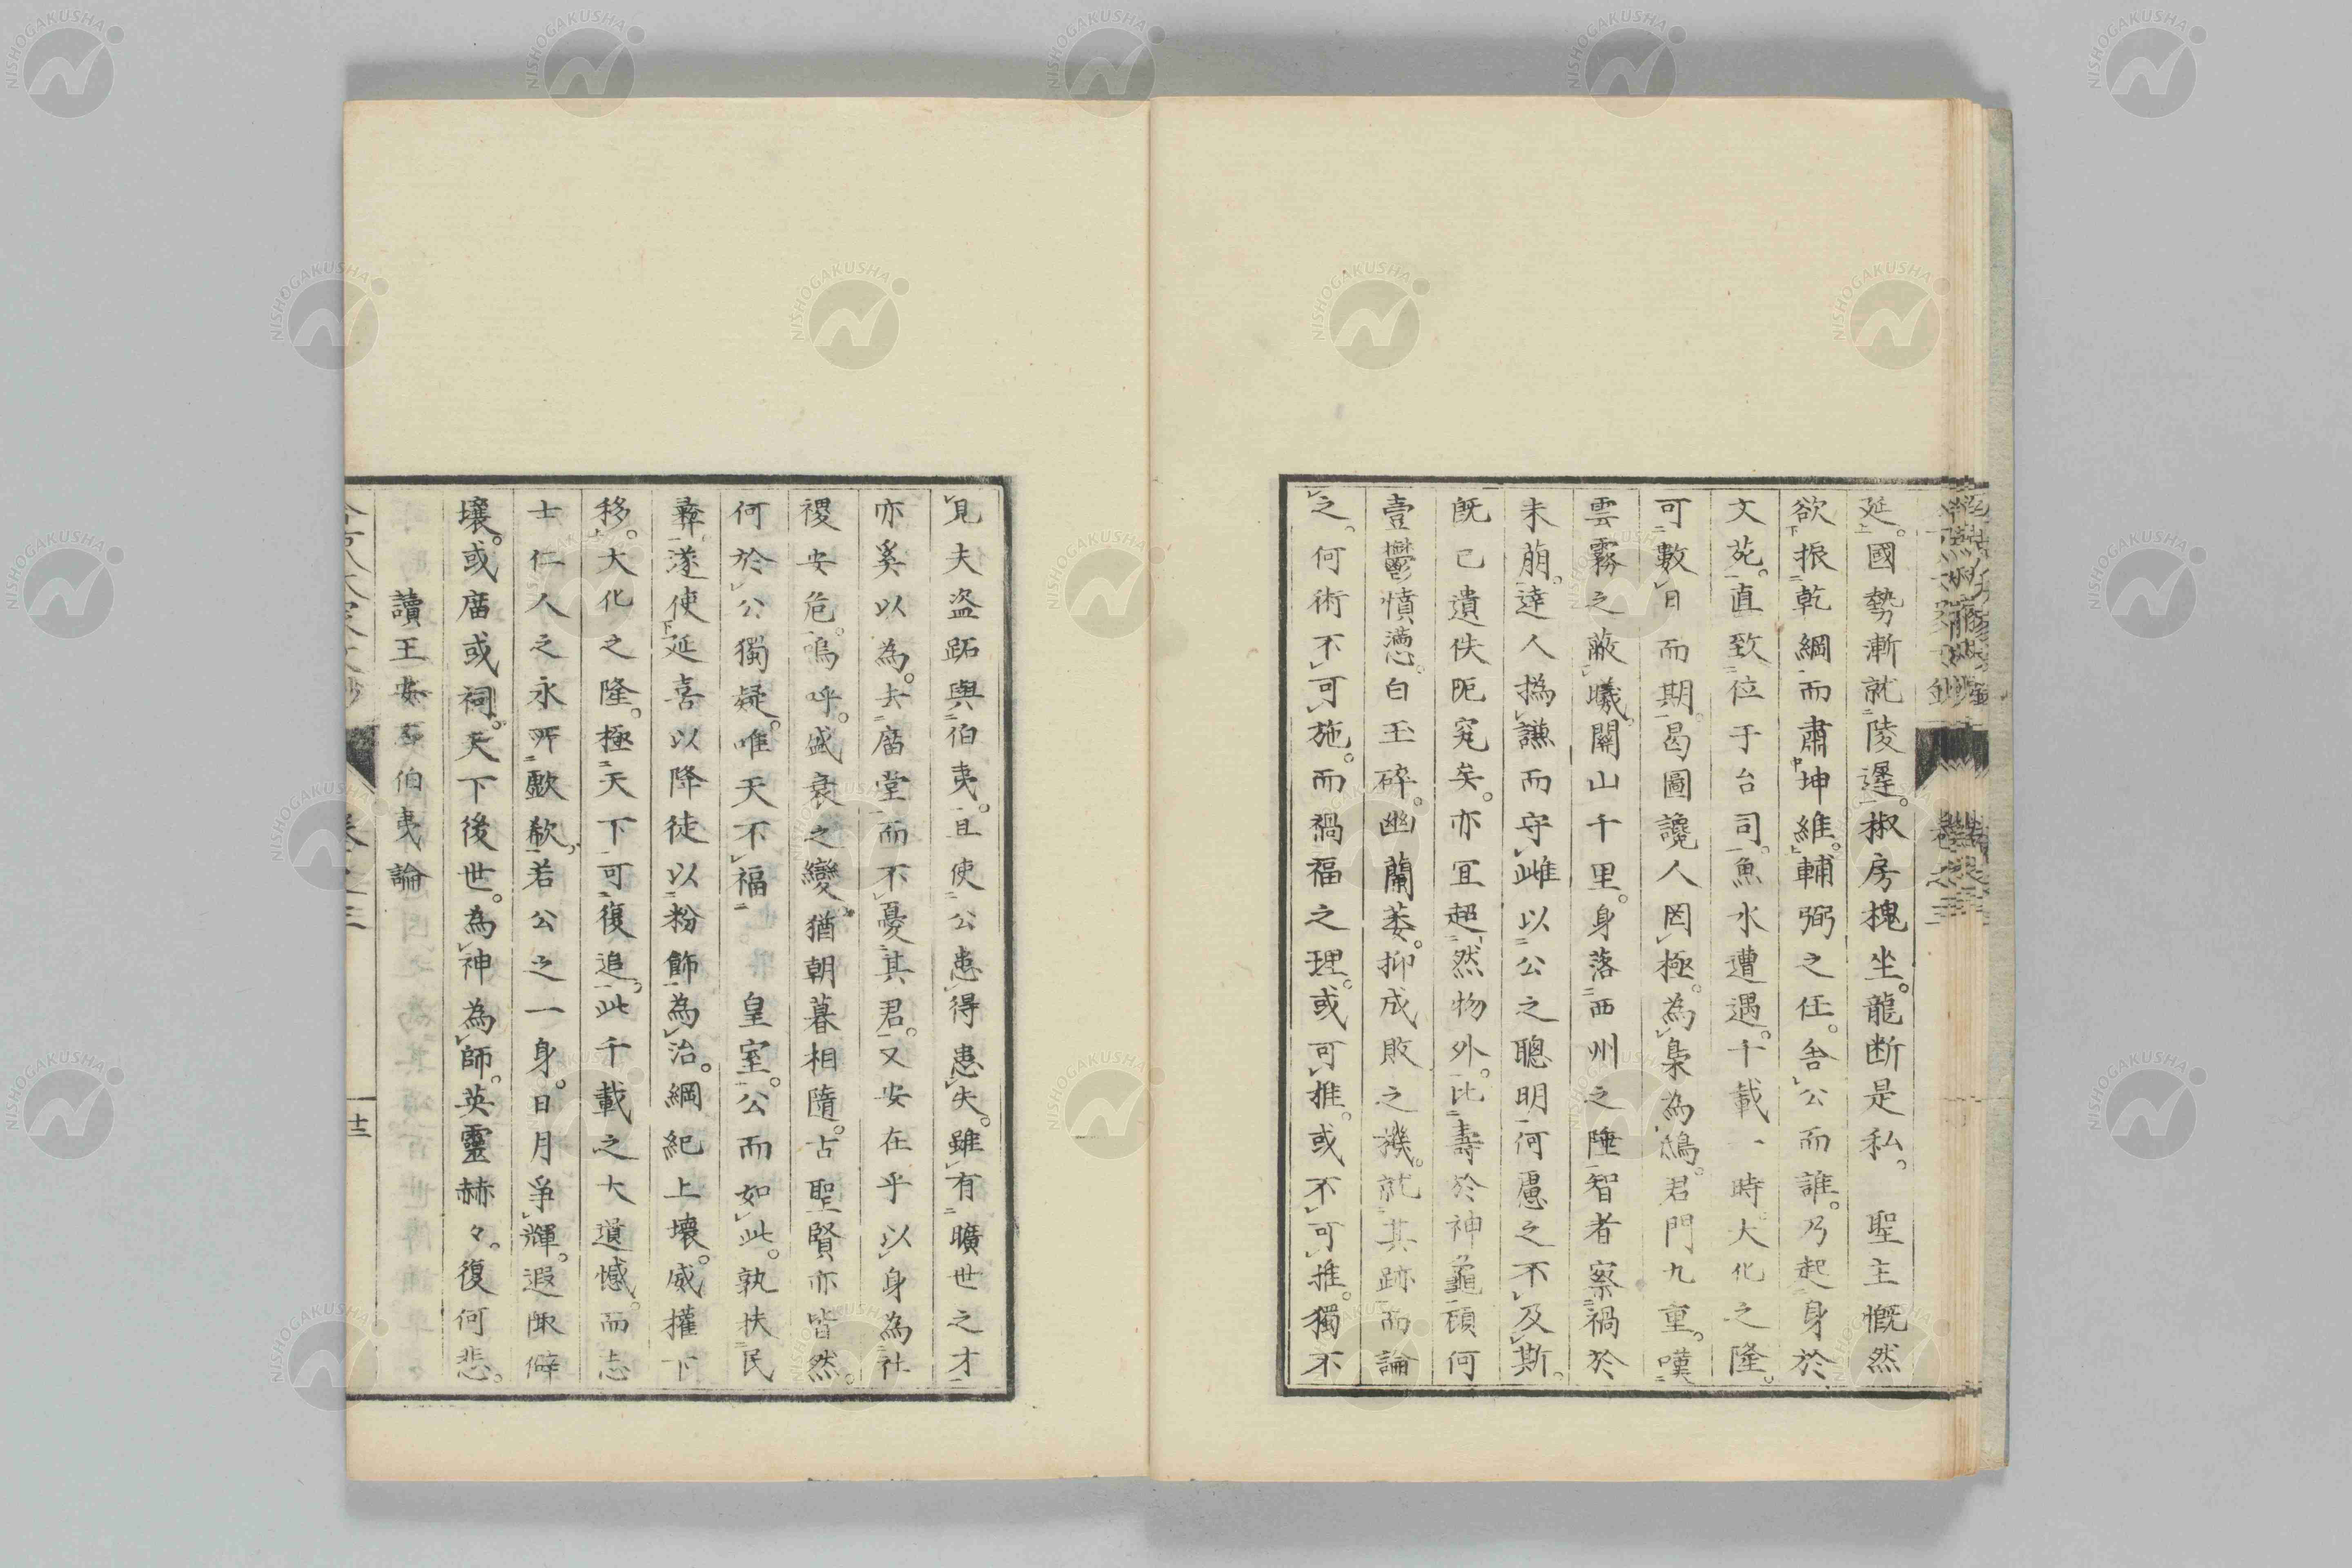 延。國勢漸就陵遲。椒房槐坐。龍断是私。　聖主慨然
欲振乾綱而肅坤維。輔弼之任。舎公而誰。乃起身於
文苑。直致位于台司。魚水遭遇。千載一時。大化之隆。
可數日而期。曷圖讒人罔極。為梟為鴟。君門九重。嘆
雲霧之蔽曦。關山千里。身落西州之陲。智者察禍於
未萠。逹人撝謙而守雌。以公之聰明。何慮之不及斯。
既已遺佚阨窮矣。亦宜超然物外。比壽於神龜。頋何
壹鬱憤懑。白玉碎。幽蘭萎。抑成敗之機。就其跡而論
之。何術不可施。而禍福之理。或可推。或不可推。獨不
見夫盗跖與伯夷。且使公患得患失。雖有曠世之才
亦奚以為。去廟堂而不憂其君。又安在乎以身為社
稷安危。嗚呼。盛衰之變。猶朝暮相隨。古聖賢亦皆然。
何於公獨疑。唯天不福　皇室。公而如此。孰扶民
彝。遂使延喜以降徒以粉飾為治。綱紀上壞。威權下
移。大化之隆。極天下可復追。此千載之大遺憾。而志
士仁人之永所歔欷。若公之一身。日月爭輝。遐陬僻
壤。或廟或祠。天下後世。為神為師。英靈赫々。復何悲。
讀王安石伯夷論
卷之三
十三
NISHOGAKUSHA